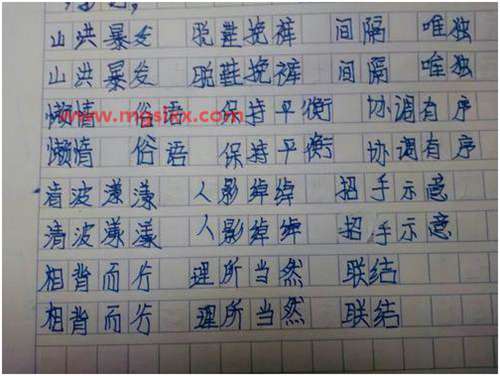 山洪暴发 脱鞋挽裤 间隔 唯独
山洪暴发 脱鞋挽裤 间隔 唯独
懒惰 俗语 保持平衡 协调有序
www.mgsixx.com
懒惰 俗语 保持平衡 协调有序
清波漾漾 人影绰绰 招手示意
清波漾漾 人影绰绰 招手示意
相背而行 理所当然 联结
相背而行 理所当然 联结